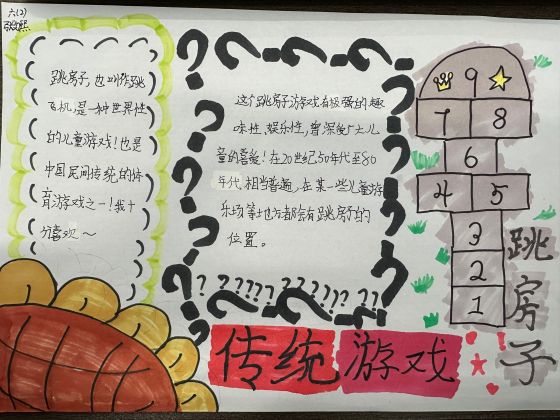 六(2)
跳房子,也叫作跳
飞机,是一种世界性
的儿童游戏!也是
中国民间传统的体
育游戏之一!我十
分喜欢~
这个跳房子游戏有极强的趣
味性、娱乐性,曾深受广大儿
童的喜爱!在20世纪50年代至80
年代,相当普遍,在某一些儿童游
乐场等地方都会有跳房子的
位置。
9
7 8
6
4 5
3
2
1
跳房子
传统游戏